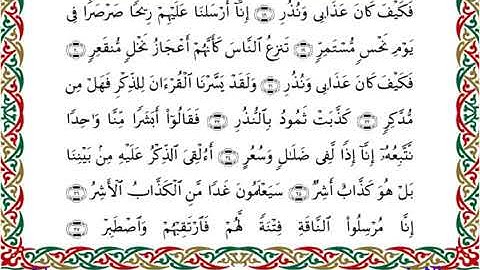 فَكَيْفَ كَانَ عَذَابِى وَنُذُرِ ۝ إِنَّآ أَرْسَلْنَا عَلَيْهِمْ رِيحًا صَرْصَرًا فِى
يَوْمِ نَحْسٍ مُّسْتَمِرٍّ ۝ تَنزِعُ ٱلنَّاسَ كَأَنَّهُمْ أَعْجَازُ نَخْلٍ مُّنقَعِرٍ ۝
فَكَيْفَ كَانَ عَذَابِى وَنُذُرِ ۝ وَلَقَدْ يَسَّرْنَا ٱلْقُرْءَانَ لِلذِّكْرِ فَهَلْ مِن
مُّدَّكِرٍ ۝ كَذَّبَتْ ثَمُودُ بِٱلنُّذُرِ ۝ فَقَالُوٓا۟ أَبَشَرًا مِّنَّا وَٰحِدًا
نَّتَّبِعُهُۥٓ إِنَّآ إِذًا لَّفِى ضَلَٰلٍ وَسُعُرٍ ۝ أَءُلْقِىَ ٱلذِّكْرُ عَلَيْهِ مِنۢ بَيْنِنَا
بَلْ هُوَ كَذَّابٌ أَشِرٌ ۝ سَيَعْلَمُونَ غَدًا مَّنِ ٱلْكَذَّابُ ٱلْأَشِرُ ۝
إِنَّا مُرْسِلُوا۟ ٱلنَّاقَةِ فِتْنَةً لَّهُمْ فَٱرْتَقِبْهُمْ وَٱصْطَبِرْ ۝